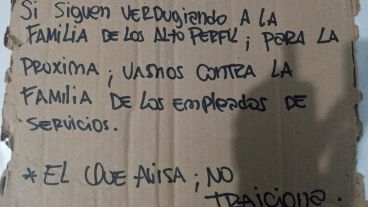 Si SiGUEN VERDUGiANDO A LA
FAMiLiA DE LOS ALTO PERFiL ; PARA LA
PROXiMA ; VAMOS CONTRA LA
FAMiLiA DE LOS EMPLEADOS DE
SERViCiOS.
* EL QUE AViSA ; NO
TRAiCiONA.